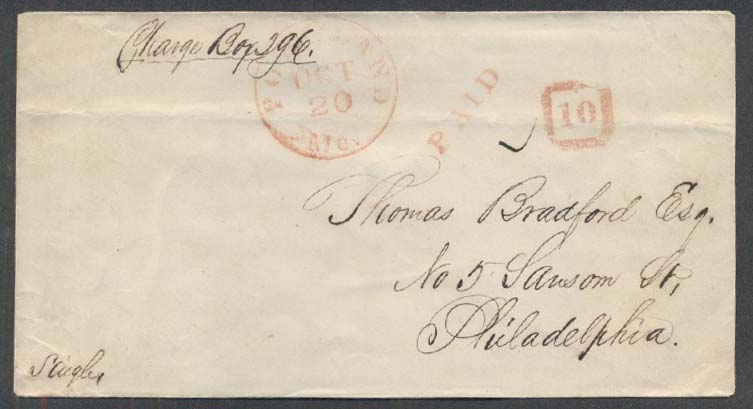 Charge Box 296.
PORTLAND
OCT
20
Me.
PAID
10
Thomas Bradford Esq.
No 5 Sansom St,
Philadelphia.
Single